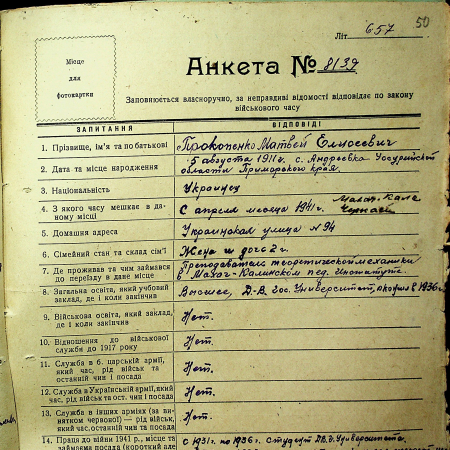 50
Літ. 657
Місце
для
фотокартки
Анкета № 8139
Заповнюється власноручно, за неправдиві відомості відповідаю по закону
військового часу
ЗАПИТАННЯ
ВІДПОВІДІ
1. Прізвище, ім'я та по батькові
Прокопенко Матвей Елисеевич
2. Дата та місце народження
5 августа 1911 г. с. Андреевка Уссурийской
области Приморского края.
3. Національність
Украинец
4. З якого часу мешкає в даному місці
С апреля месяца 1941 г. Махач-Кала
5. Домашня адреса
Украинская улица N 94
6. Сімейний стан та склад сім'ї
Жена и дочь 2 г.
7. Де проживав та чим займався
до переїзду в дане місце
Преподаватель теоретической механики
в Махач-Калинском пед. Институте.
8. Загальна освіта, який учбовий
заклад, де і коли закінчив
Высшее, Д-В. Гос. Университет, окончил в 1936 г.
9. Військова освіта, який заклад,
де і коли закінчив
Нет.
10. Відношення до військової
служби до 1917 року
Нет.
11. Служба в б. царській армії,
який час, рід військ та
останній чин і посада
Нет.
12. Служба в Українській армії, який
час, рід військ та ост. чин і посада
Нет.
13. Служба в інших арміях (за винятком
червоної) — рід військ,
який час, останній чин та посада
Нет.
14. Праця до війни 1941 р., місце та
займаєма посада (короткий
С 1931 г. по 1936 г. студент Д.В.Д. Университета.